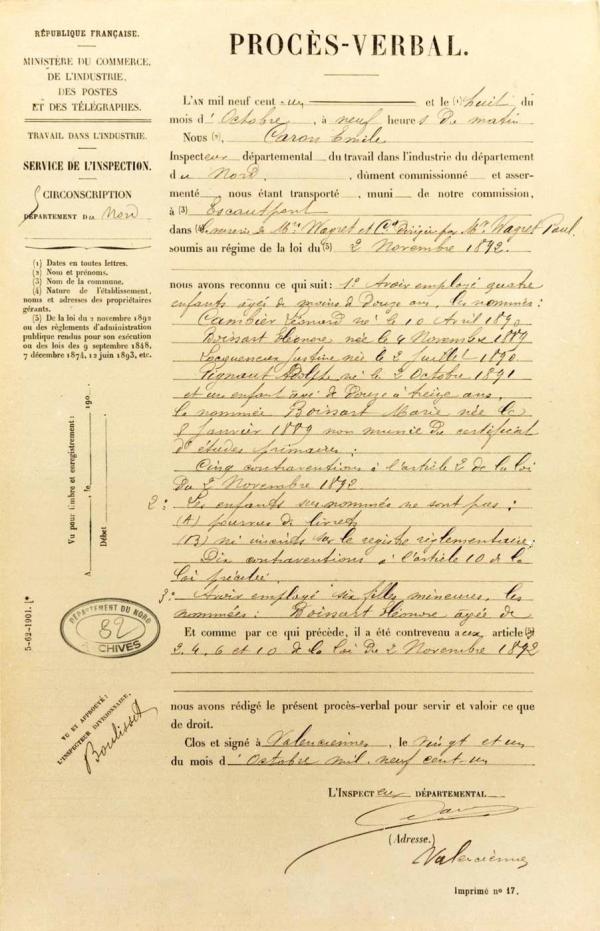 RÉPUBLIQUE FRANÇAISE.
MINISTÈRE DU COMMERCE,
DE L'INDUSTRIE,
DES POSTES
ET DES TÉLÉGRAPHES.
TRAVAIL DANS L'INDUSTRIE.
SERVICE DE L'INSPECTION.
5 CIRCONSCRIPTION
DÉPARTEMENT du Nord
(1) Dates en toutes lettres.
(2) Nom et prénoms.
(3) Nom de la commune.
(4) Nature de l'établissement,
noms et adresses des propriétaires
gérants.
(5) De la loi du 2 novembre 1892
ou des règlements d'administration
publique rendus pour son exécution
ou des lois des 9 septembre 1848,
7 décembre 1874, 12 juin 1893, etc.
Vu pour timbre et enregistrement:
A , le 190
Débet
5-62-1901. [*
DÉPARTEMENT DU NORD
82
ARCHIVES
VU ET APPROUVÉ:
L'INSPECTEUR DIVISIONNAIRE,
Boulisset
PROCÈS-VERBAL.
L'AN mil neuf cent un et le (1) huit du
mois d'Octobre, à neuf heures du matin
Nous (2), Caron Emile
Inspecteur départemental du travail dans l'industrie du département
du Nord, dûment commissionné et asser-
menté, nous étant transporté, muni de notre commission,
à (3) Escautpont
dans (4) verrerie de Mrs Wagret et Cie dirigée par Mr Wagret Paul
soumis au régime de la loi du (5) 2 Novembre 1892.
nous avons reconnu ce qui suit: 1° Avoir employé quatre
enfants âgés de moins de Douze ans, les nommés:
Cambier Léonard né le 10 Avril 1890
Boissart Eléonore née le 4 Novembre 1889
Lecqueneux Justine née le 2 Juillet 1890
Pignaut Adolphe né le 2 Octobre 1891
et un enfant âgé de Douze à treize ans,
la nommée Boissart Marie née le
8 Janvier 1889 non munie du certificat
d'études primaires;
Cinq contraventions à l'article 2 de la loi
du 2 Novembre 1892
2°: Les enfants sus nommés ne sont pas:
(A) pourvus de livrets
(B) ni inscrits sur le registre réglementaire;
Dix contraventions à l'article 10 de la
loi précitée.
3°: Avoir employé six filles mineures, les
nommées: Boissart Eléonore âgée de
Et comme par ce qui précède, il a été contrevenu aux article (5)
2. 4. 6 et 10 de la loi du 2 Novembre 1892
nous avons rédigé le présent procès-verbal pour servir et valoir ce que
de droit.
Clos et signé à Valenciennes, le vingt et un
du mois d'Octobre mil neuf cent un
L'INSPECTeur DÉPARTEMENTAL
Caron
(Adresse.)
Valenciennes
Imprimé n° 17.